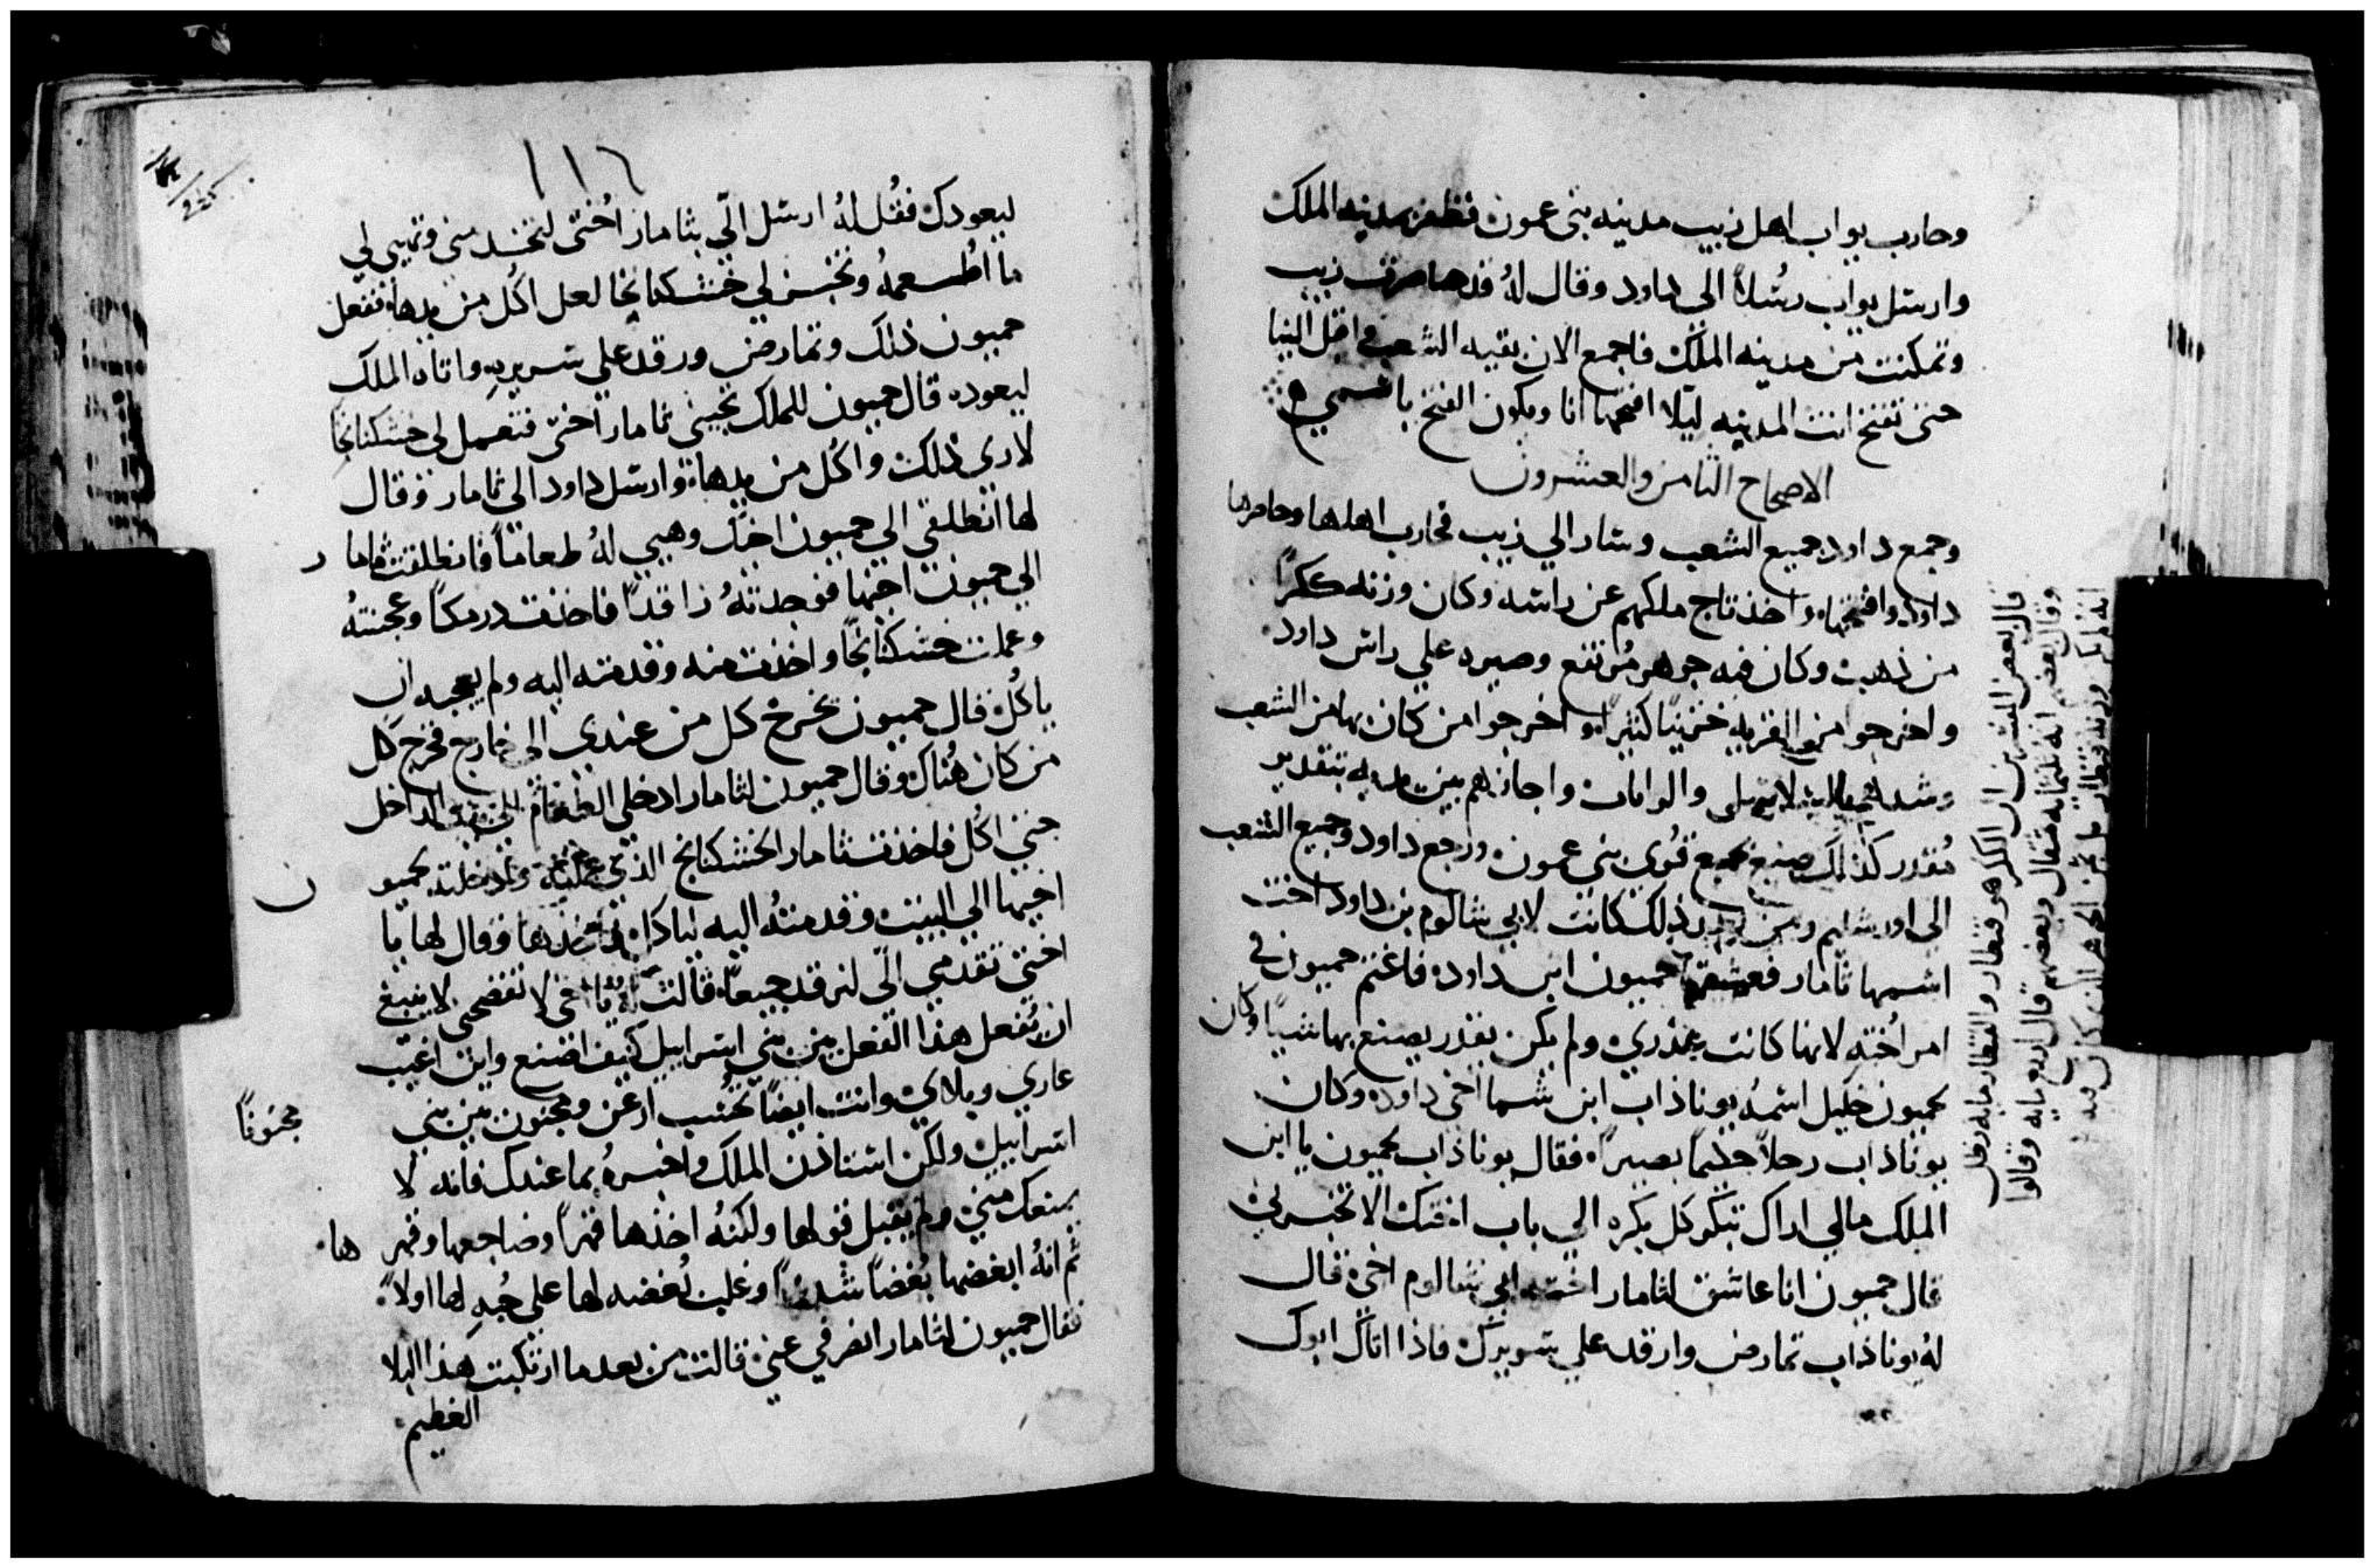 وحارب يواب اهل زبيب مدينه بنى عمون فظفر بمدينه الملك
وارسل يواب رسُلاً الى داود وقال لهُ قد حاصرت زبيب
وتمكنت من مدينه الملك فاجمع الان بقيه الشعب واقبل الينا
حتى تفتح انت المدينه ليّلا افتحها انا ويكون الفتح باسمي
الاصحاح الثامن والعشرون
وجمع داود جميع الشعب وسار الي زبيب فحارب اهلها وحاصرها
داود وافتتحها واخذ تاج ملكهم عن راسه وكان وزنه ككرًا
من ذهب وكان فيه جوهر مُرتفع وصيره علي راس داود
واخرجوا من القريه كثيراً واخرجوا من كان بها من الشعب
وشد واجازهم بين يديه بتقدير
مُقدر كذلك صنع بجميع قُرى بنى عمون ورجع داود وجميع الشعب
الى اورشليم ومن بعد ذلك كانت لابي شالوم بن داود اخت
اسمها ثامار فعشقها حميون ابن داود فاغتم حميون في
امر اُخته لانها كانت عذري ولم يكن يقدر يصنع بها شيًا وكان
لحميون خليل اسمهُ يوناذاب ابن شمعا اخى داود وكان
يوناذاب رجلاً حكيمًا بصيراً فقال يوناذاب لحميون يا ابن
الملك مالي اراك تبكر كل بكره الي باب اختك الا تخبرني
قال حميون انا عاشق لثامار اخت ابي شالوم اخى قال
لهُ يوناذاب تمارض وارقد علي سريرك فاذا اتاك ابوك
قال بعض المفسرين ان الككر هو قنطار والقنطار مايه رطل
وقال بعضهم انه ثلثمايه مثقال وبعضهم قال اربع مايه وقالوا
١١٦
ليعودك فقُل لهُ ارسل الّي بثامار اُختى وتهيى لي
ما اطعمهُ وتخبز لي خشكنانجا لعل اكُل من يدها ففعل
حميون ذلك وتمارض ورقد علي سريره واتاه الملك
ليعوده قال حميون للملك تجيني ثامار اختى فتعمل لي خشكنانجًا
لارى ذلك واكُل من يدها وارسل داود الي ثامار وقال
لها انطلقي الي حميون اخيك وهيي لهُ طعامًا فانطلقت ثامار
الي حميون اخيها فوجدتهُ راقدًا فاخذت درمكًا وعجنتهُ
وعملت خشكنانجًا واخذت منه وقدمته اليه ولم يعجبه ان
ياكُل قال حميون يخرج كل من عندي الي خارج فخرج كل
من كان هُناك وقال حميون لثامار ادخلي الطعام الداخل
حتى اكُل فاخذت ثامار الخشكنانج الذي وادخلته لحميون
اخيها الي البيت وقدمتهُ اليه لياكل وقال لها يا
اختى تقدمي الّي لنرقد جميعًا قالت لهُ يا اخى لا تفضحنى لا ينبغي
ان يُفعل هذا الفعل بين بني اسراييل كيف اصنع واين اغيب
عاري وبلاي وانت ايضًا تُحسب ارعن ومجنون بين بني
مجنونًا
اسراييل ولكن استاذن الملك واخبرهُ بما عندك فانه لا
يمنعك مني ولم يقبل قولها ولكنهُ اخذها قهراً وضاجعها وقهرها
ثم انهُ ابغضها بُغضاً شديدًا وغلب بُغضه لها علي حُبه لها اولاً
فقال حميون لثامار انصرفي عني قالت من بعد ما ارتكبت هذا البلا
العظيم